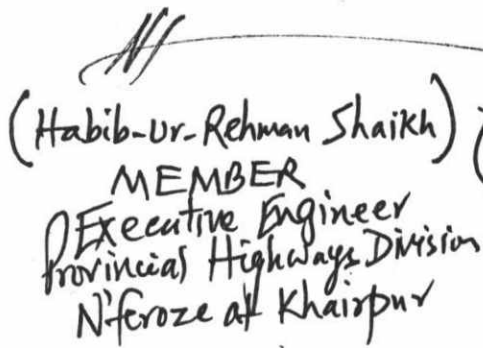 (Habib-Ur-Rehman Shaikh)
MEMBER
Executive Engineer
Provincial Highways Division
N'feroze at Khairpur